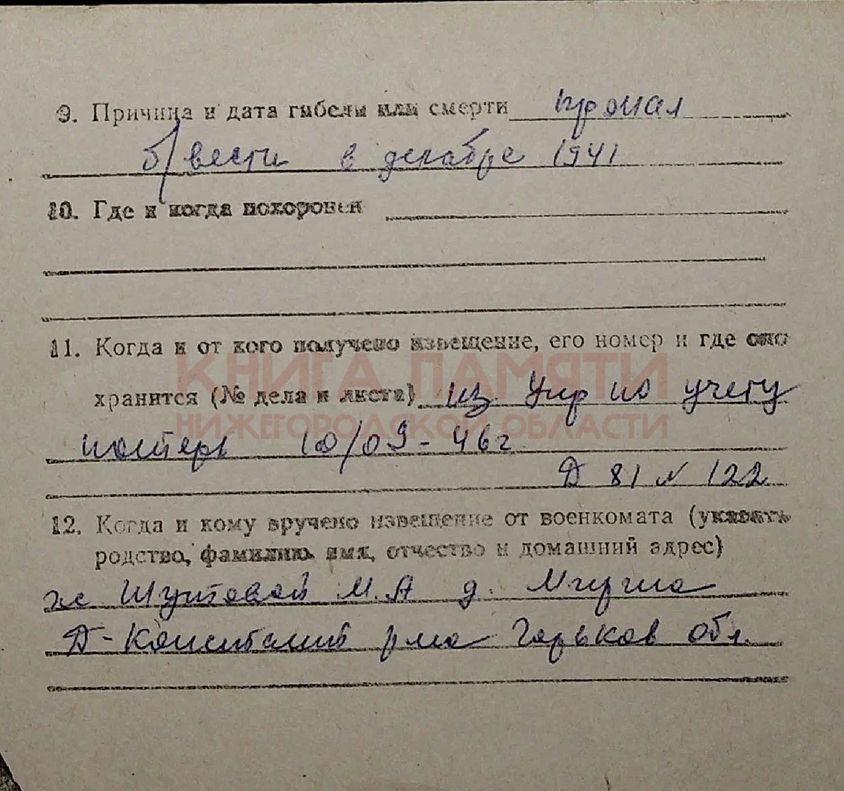 9. Причина и дата гибели или смерти пропал
б/вести в декабре 1941
10. Где и когда похоронен
11. Когда и от кого получено извещение, его номер и где оно
КНИГА ПАМЯТИ
хранится (№ дела и листа) из Упр по учету
НИЖЕГОРОДСКОЙ ОБЛАСТИ
потерь 10/09-46г
Д 81 № 122
12. Когда и кому вручено извещение от военкомата (указать
родство, фамилию, имя, отчество и домашний адрес)
же Шутовой М.А д.
Д-Константин рна Горьков обл.